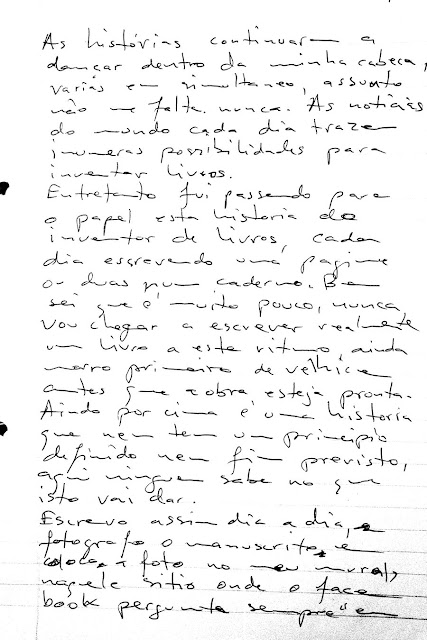 As histórias continuaram a
dançar dentro da minha cabeça,
varias em simultaneo, assunto
não me falta nunca. As noticias
do mundo cada dia trazem
inumeras possibilidades para
inventar livros.
Entretanto fui passando para
o papel esta historia do
inventor de livros, cada
dia escrevendo uma pagina
ou duas num caderno. Bem
sei que é muito pouco, nunca
vou chegar a escrever realmente
um livro a este ritmo, ainda
morro primeiro de velhice
antes que a obra esteja pronta.
Ainda por cima é uma historia
que nem tem um principio
definido nem fim previsto,
aqui ninguem sabe no que
isto vai dar.
Escrevo assim dia a dia,
fotografo o manuscrito e
coloco a foto no meu mural,
naquele sitio onde o face
book pergunta sempre "em